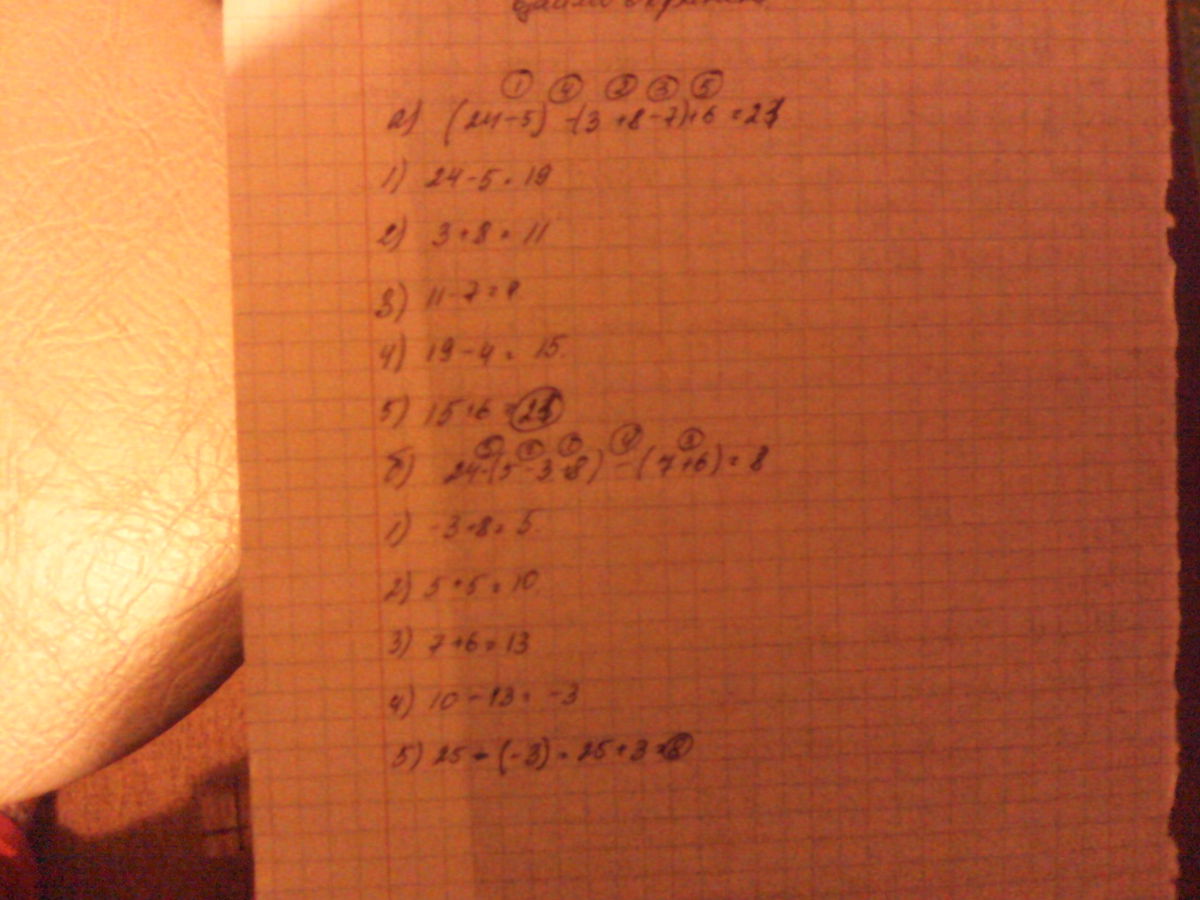 ① ④ ② ③ ⑤
а) (24-5) -(3+8-7)+6 = 21
1) 24-5=19
2) 3+8=11
3) 11-7=
4) 19-4=15.
5) 15+6=21
б) 24-(5-3+8) -(7+6)=8
1) -3+8=5.
2) 5+5=10.
3) 7+6=13
4) 10-13=-3
5) 25-(-3)=25+3=8